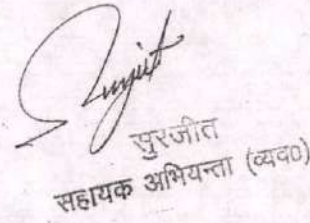 Surjit
सुरजीत
सहायक अभियन्ता (व्यव०)